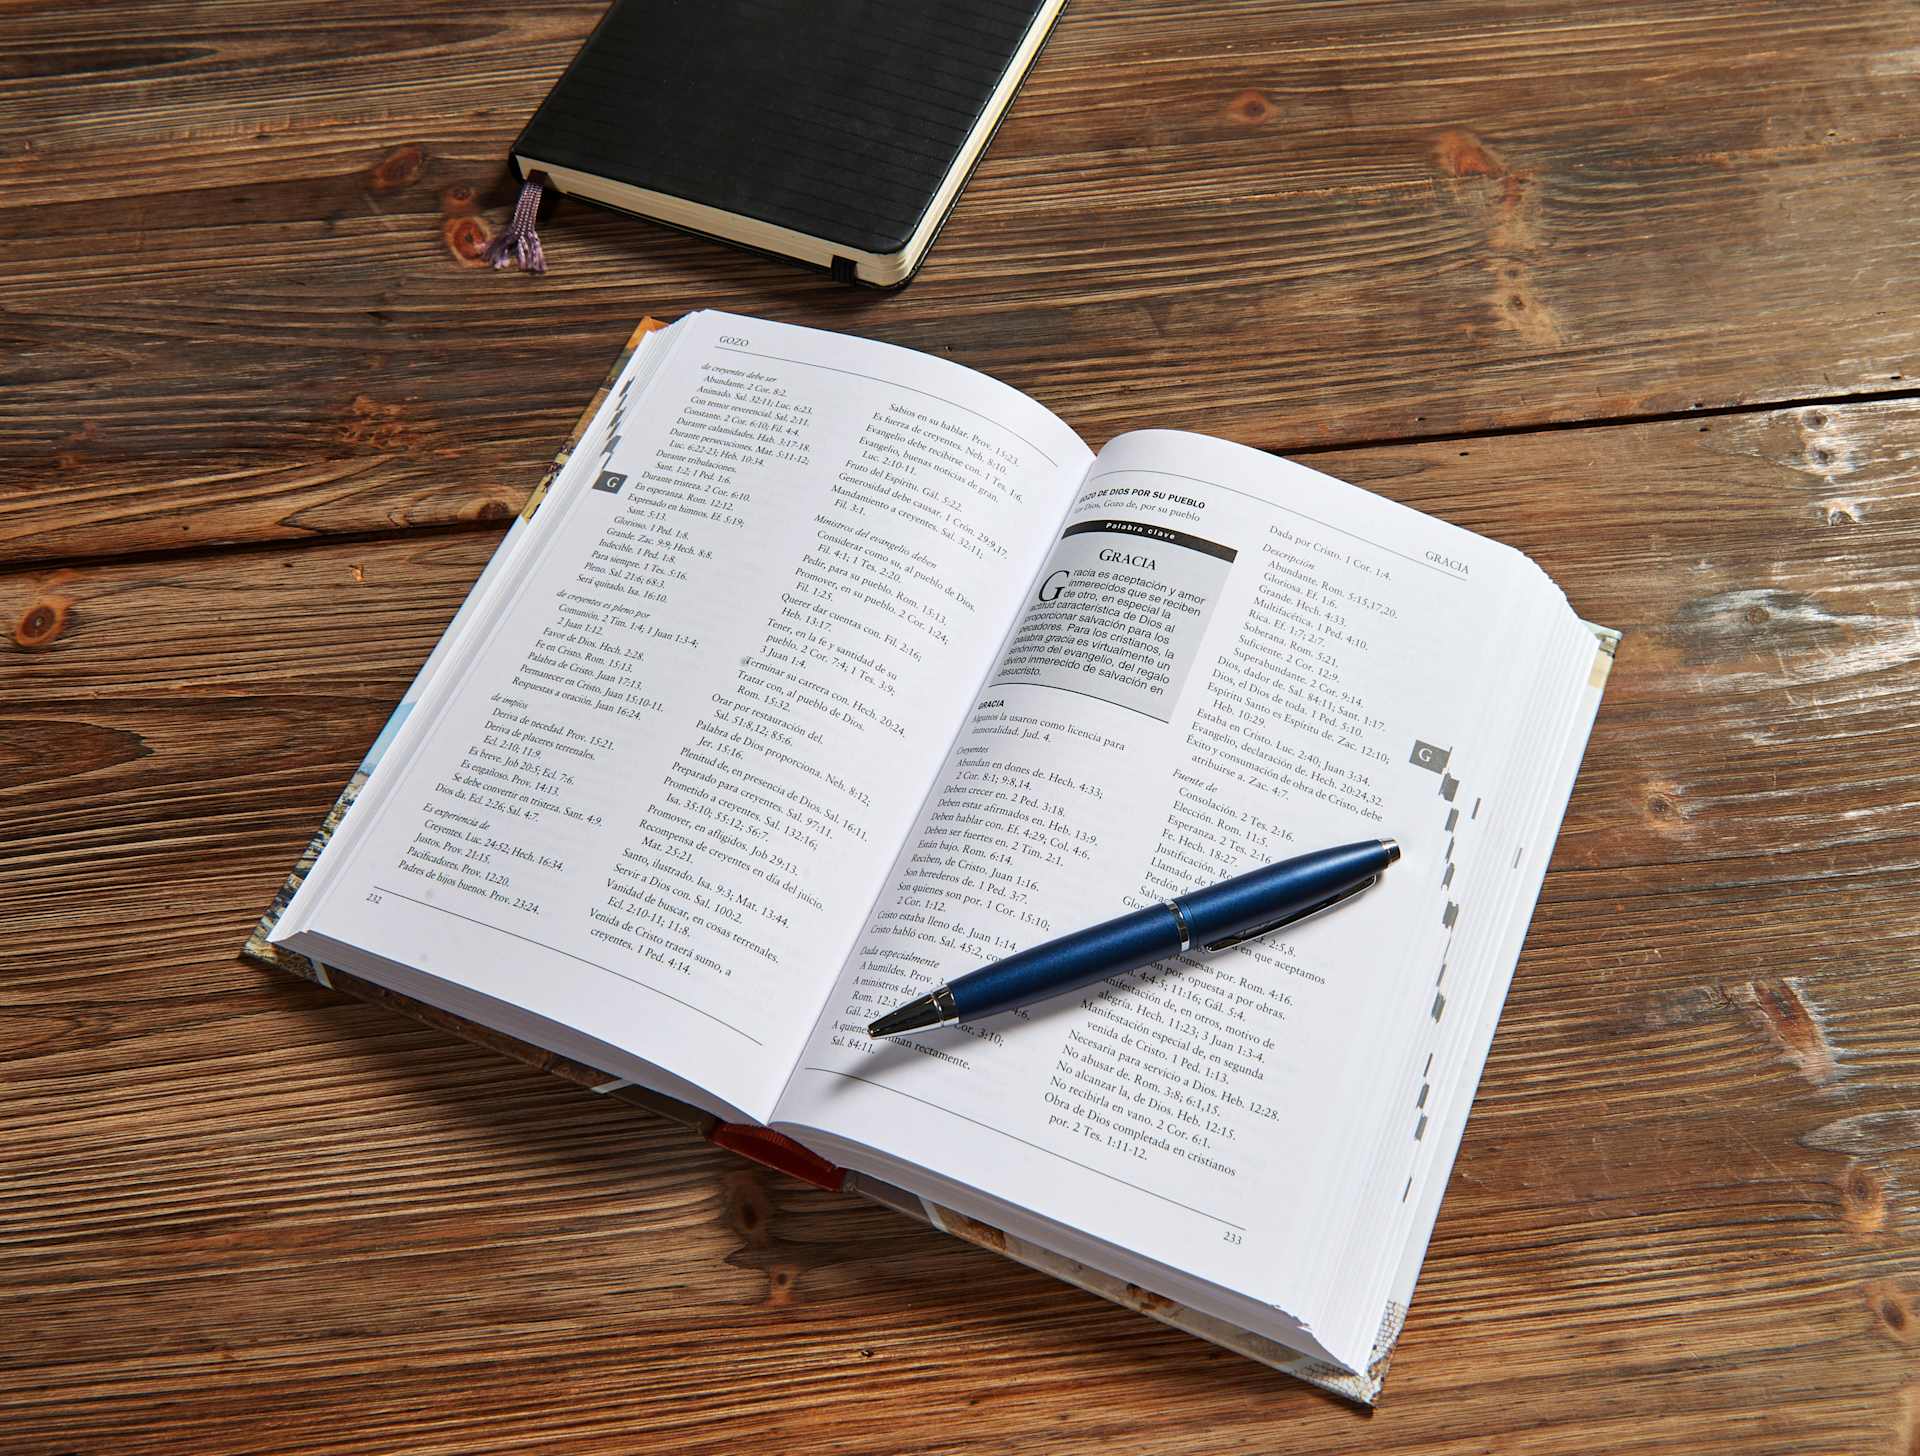 GOZO
de creyentes debe ser
Abundante. 2 Cor. 8:2.
Animado. Sal. 32:11; Luc. 6:23.
Con temor reverencial. Sal. 2:11.
Constante. 2 Cor. 6:10; Fil. 4:4.
Durante calamidades. Hab. 3:17-18.
Durante persecuciones. Mat. 5:11-12;
Luc. 6:22-23; Heb. 10:34.
Durante tribulaciones.
Sant. 1:2; 1 Ped. 1:6.
Durante tristeza. 2 Cor. 6:10.
En esperanza. Rom. 12:12.
Expresado en himnos. Ef. 5:19;
Sant. 5:13.
Glorioso. 1 Ped. 1:8.
Grande. Zac. 9:9; Hech. 8:8.
Indecible. 1 Ped. 1:8.
Para siempre. 1 Tes. 5:16.
Pleno. Sal. 21:6; 68:3.
Será quitado. Isa. 16:10.
de creyentes es pleno por
Comunión. 2 Tim. 1:4; 1 Juan 1:3-4;
2 Juan 1:12.
Favor de Dios. Hech. 2:28.
Fe en Cristo. Rom. 15:13.
Palabra de Cristo. Juan 17:13.
Permanecer en Cristo. Juan 15:10-11.
Respuestas a oración. Juan 16:24.
de impíos
Deriva de necedad. Prov. 15:21.
Deriva de placeres terrenales.
Ecl. 2:10; 11:9.
Es breve. Job 20:5; Ecl. 7:6.
Es engañoso. Prov. 14:13.
Se debe convertir en tristeza. Sant. 4:9.
Dios da. Ecl. 2:26; Sal. 4:7.
Es experiencia de
Creyentes. Luc. 24:52; Hech. 16:34.
Justos. Prov. 21:15.
Pacificadores. Prov. 12:20.
Padres de hijos buenos. Prov. 23:24.
232
G
Sabios en su hablar. Prov. 15:23.
Es fuerza de creyentes. Neh. 8:10.
Evangelio debe recibirse con. 1 Tes. 1:6.
Evangelio, buenas noticias de gran.
Luc. 2:10-11.
Fruto del Espíritu. Gál. 5:22.
Generosidad debe causar. 1 Crón. 29:9,17.
Mandamiento a creyentes. Sal. 32:11;
Fil. 3:1.
Ministros del evangelio deben
Considerar como su, al pueblo de Dios.
Fil. 4:1; 1 Tes. 2:20.
Pedir, para su pueblo. Rom. 15:13.
Promover, en su pueblo. 2 Cor. 1:24;
Fil. 1:25.
Querer dar cuentas con. Fil. 2:16;
Heb. 13:17.
Tener, en la fe y santidad de su
pueblo. 2 Cor. 7:4; 1 Tes. 3:9;
3 Juan 1:4.
Terminar su carrera con. Hech. 20:24.
Tratar con, al pueblo de Dios.
Rom. 15:32.
Orar por restauración del.
Sal. 51:8,12; 85:6.
Palabra de Dios proporciona. Neh. 8:12;
Jer. 15:16.
Plenitud de, en presencia de Dios. Sal. 16:11.
Preparado para creyentes. Sal. 97:11.
Prometido a creyentes. Sal. 132:16;
Isa. 35:10; 55:12; 56:7.
Promover, en afligidos. Job 29:13.
Recompensa de creyentes en día del juicio.
Mat. 25:21.
Santo, ilustrado. Isa. 9:3; Mat. 13:44.
Servir a Dios con. Sal. 100:2.
Vanidad de buscar, en cosas terrenales.
Ecl. 2:10-11; 11:8.
Venida de Cristo traerá sumo, a
creyentes. 1 Ped. 4:14.
GRACIA
GOZO DE DIOS POR SU PUEBLO
Dios, Gozo de, por su pueblo
Palabra clave
GRACIA
Gracia es aceptación y amor
inmerecidos que se reciben
de otro, en especial la
actitud característica de Dios al
proporcionar salvación para los
pecadores. Para los cristianos, la
palabra gracia es virtualmente un
sinónimo del evangelio, del regalo
divino inmerecido de salvación en
Jesucristo.
GRACIA
Algunos la usaron como licencia para
inmoralidad. Jud. 4.
Creyentes
Abundan en dones de. Hech. 4:33;
2 Cor. 8:1; 9:8,14.
Deben crecer en. 2 Ped. 3:18.
Deben estar afirmados en. Heb. 13:9.
Deben hablar con. Ef. 4:29; Col. 4:6.
Deben ser fuertes en. 2 Tim. 2:1.
Están bajo. Rom. 6:14.
Reciben, de Cristo. Juan 1:16.
Son herederos de. 1 Ped. 3:7.
Son quienes son por. 1 Cor. 15:10;
2 Cor. 1:12.
Cristo estaba lleno de. Juan 1:14.
Cristo habló con. Sal. 45:2,
Dada especialmente
A humildes. Prov. 3
A ministros del
Rom. 12:3,
Gál. 2:9
Cor. 3:10;
4:6.
A quienes
rectamente.
Sal. 84:11.
Dada por Cristo. 1 Cor. 1:4.
Descripción
Abundante. Rom. 5:15,17,20.
Gloriosa. Ef. 1:6.
Grande. Hech. 4:33.
Multifacética. 1 Ped. 4:10.
Rica. Ef. 1:7; 2:7.
Soberana. Rom. 5:21.
Suficiente. 2 Cor. 12:9.
Superabundante. 2 Cor. 9:14.
Dios, dador de. Sal. 84:11; Sant. 1:17.
Dios, el Dios de toda. 1 Ped. 5:10.
Espíritu Santo es Espíritu de. Zac. 12:10;
Heb. 10:29.
Estaba en Cristo. Luc. 2:40; Juan 3:34.
Evangelio, declaración de. Hech. 20:24,32.
Éxito y consumación de obra de Cristo, debe
atribuirse a. Zac. 4:7.
Fuente de
Consolación. 2 Tes. 2:16.
Elección. Rom. 11:5.
Esperanza. 2 Tes. 2:16
Fe. Hech. 18:27.
Justificación.
Llamado de
Perdón
Ef. 2:5,8.
en que aceptamos
promesas por. Rom. 4:16.
por, opuesta a por obras.
4:4-5; 11:16; Gál. 5:4.
Manifestación de, en otros, motivo de
alegría. Hech. 11:23; 3 Juan 1:3-4.
Manifestación especial de, en segunda
venida de Cristo. 1 Ped. 1:13.
Necesaria para servicio a Dios. Heb. 12:28.
No abusar de. Rom. 3:8; 6:1,15.
No alcanzar la, de Dios. Heb. 12:15.
No recibirla en vano. 2 Cor. 6:1.
Obra de Dios completada en cristianos
por. 2 Tes. 1:11-12.
G
233